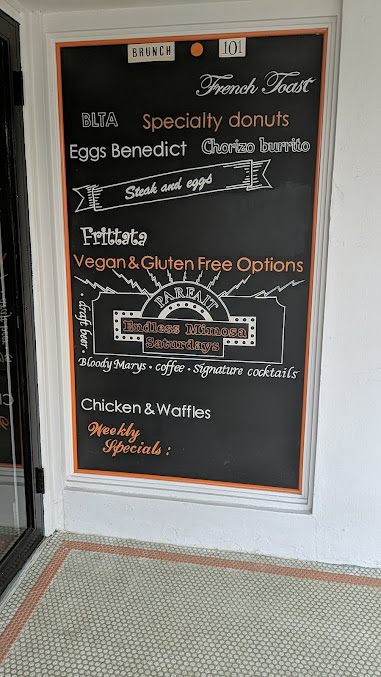 BRUNCH 101
French Toast
BLTA Specialty donuts
Eggs Benedict Chorizo burrito
Steak and eggs
Frittata
Vegan & Gluten Free Options
PARFAIT
Endless Mimosa
Saturdays
• draft beer • Bloody Marys • coffee • signature cocktails
Chicken & Waffles
Weekly
Specials: